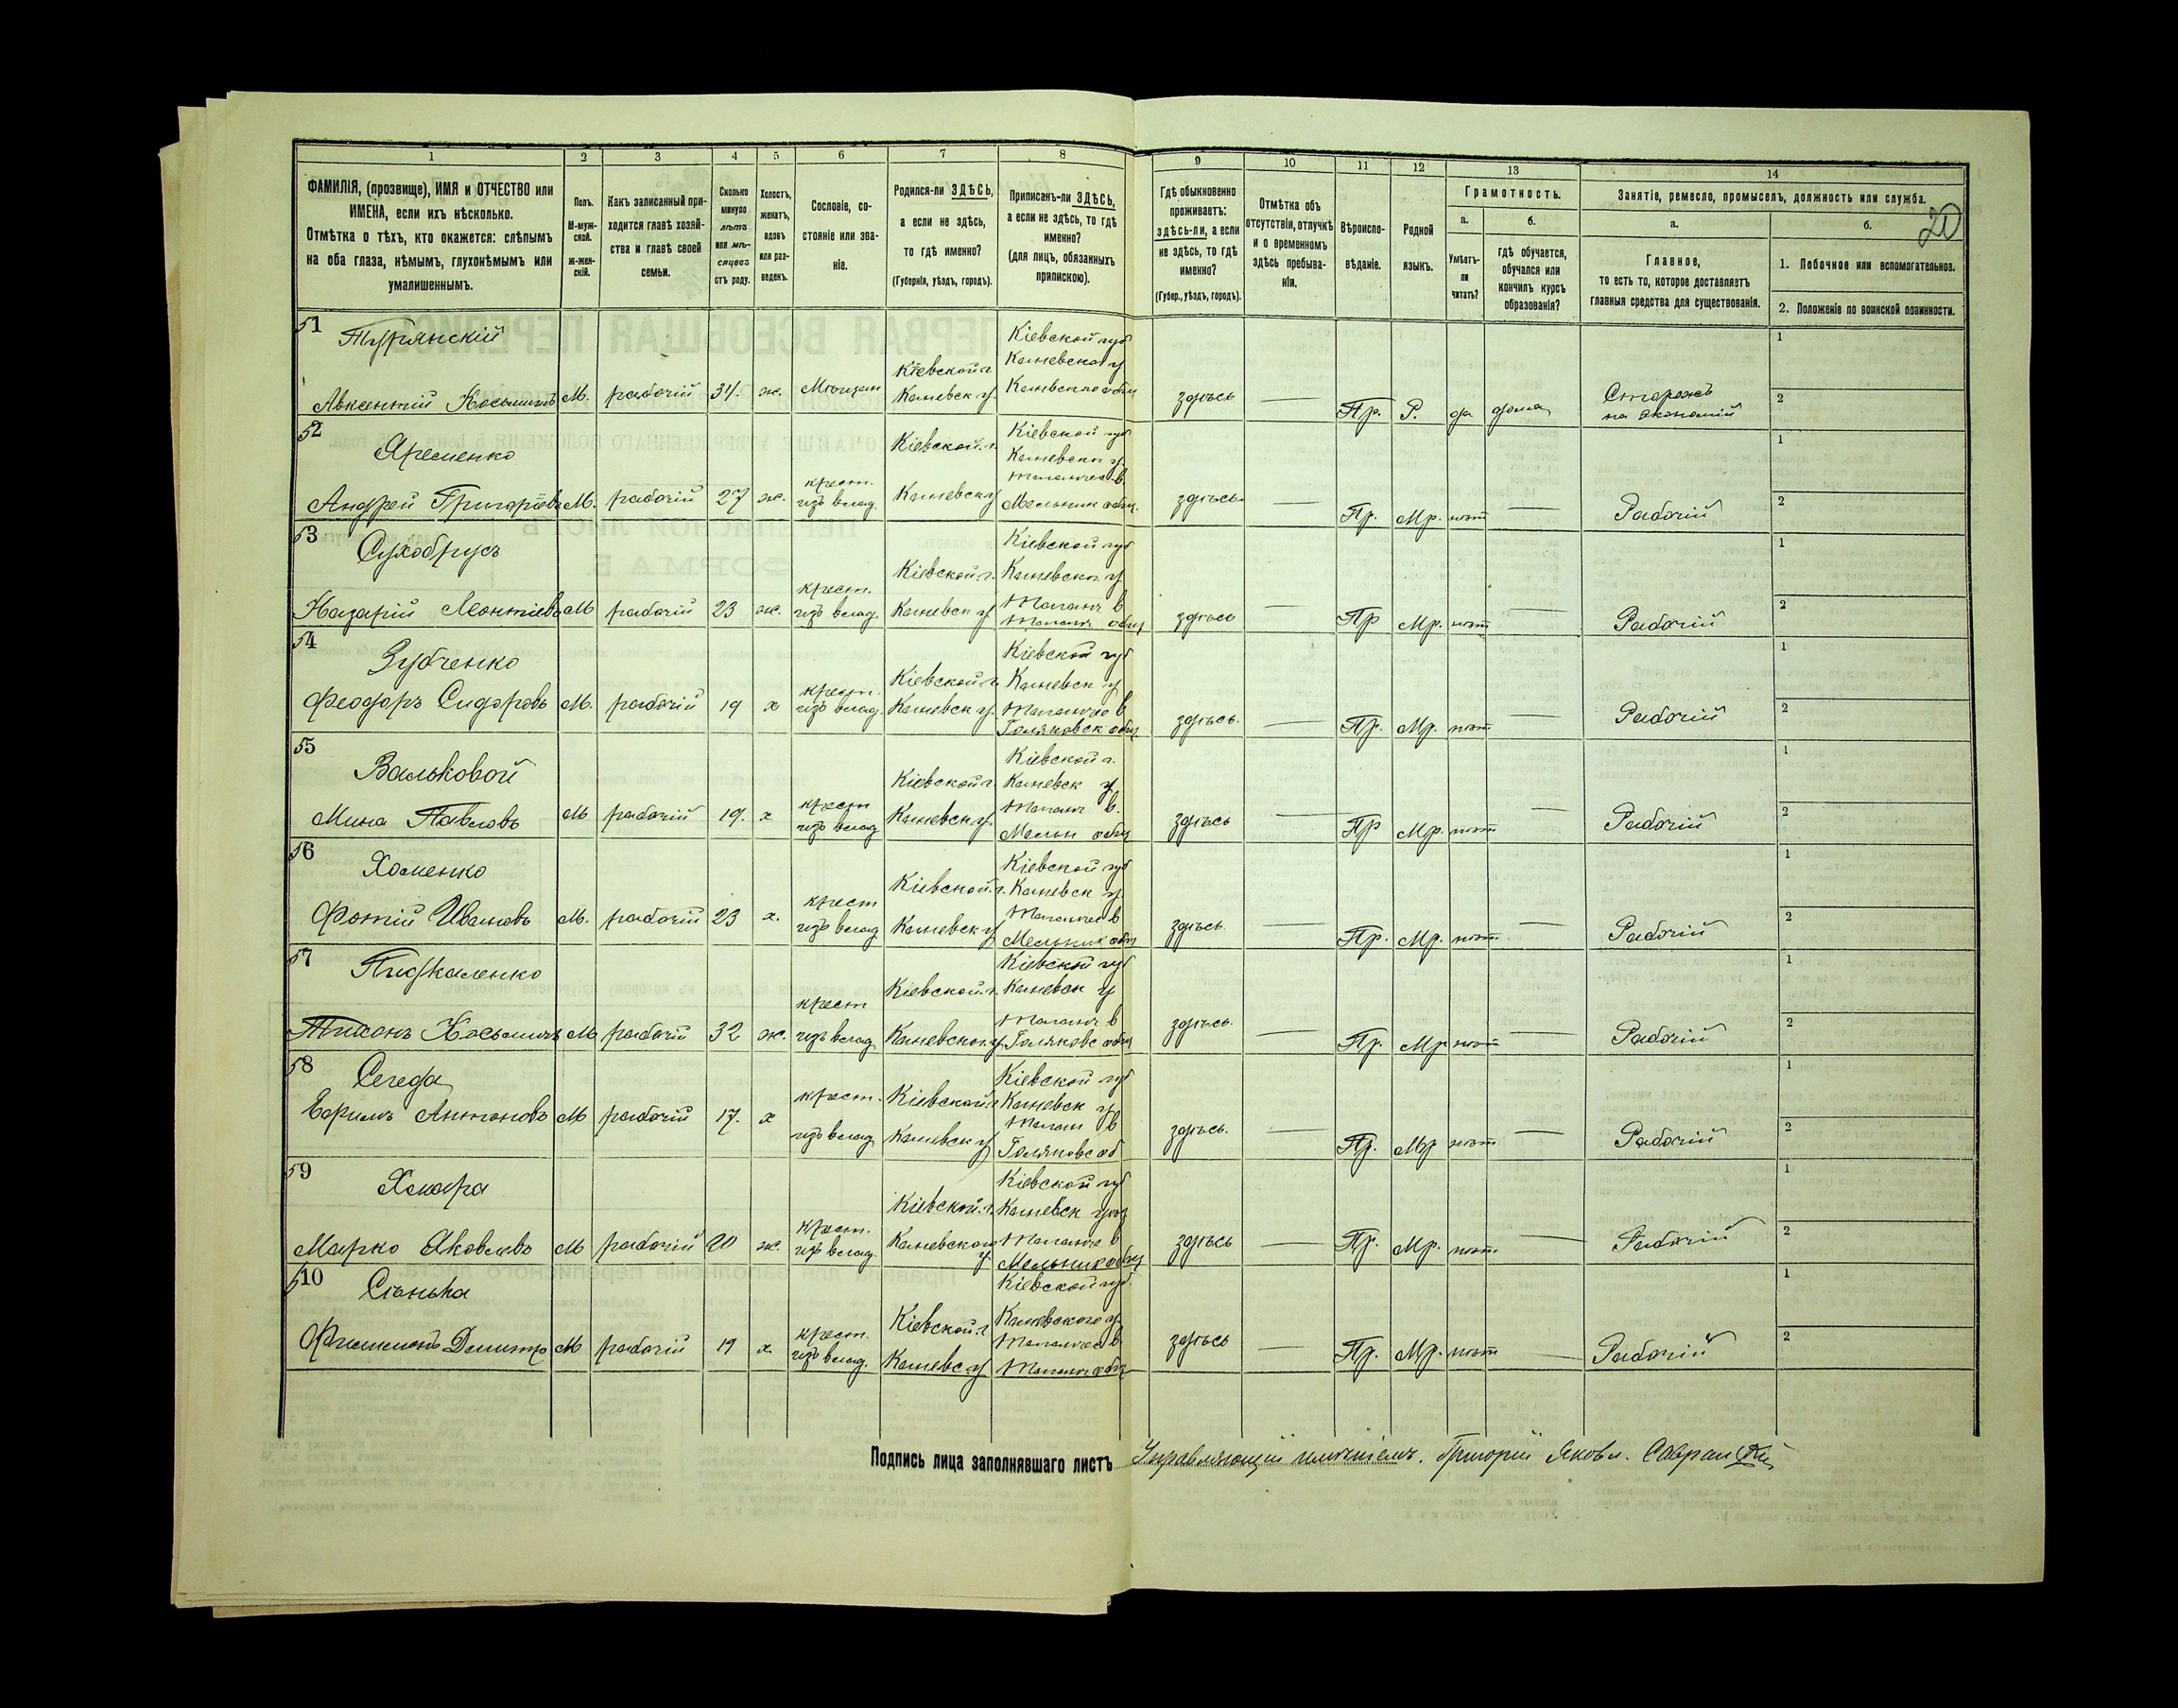 1 2 3 4 5 6 7 8 9 10 11 12 13 14
ФАМИЛІЯ, (прозвище), ИМЯ и ОТЧЕСТВО или
ИМЕНА, если ихъ нѣсколько.
Отмѣтка о тѣхъ, кто окажется: слѣпымъ
на оба глаза, нѣмымъ, глухонѣмымъ или
умалишеннымъ.
Полъ.
М-муж-
ской.
ж-жен-
скій.
Какъ записанный при-
ходится главѣ хозяй-
ства и главѣ своей
семьи.
Сколько
минуло
лѣтъ
или мѣ-
сяцевъ
отъ роду.
Холостъ,
женатъ,
вдовъ
или раз-
веденъ.
Сословіе, со-
стояніе или зва-
ніе.
Родился-ли ЗДѢСЬ,
а если не здѣсь,
то гдѣ именно?
(Губернія, уѣздъ, городъ).
Приписанъ-ли ЗДѢСЬ,
а если не здѣсь, то гдѣ
именно?
(для лицъ, обязанныхъ
припискою).
Гдѣ обыкновенно
проживаетъ:
здѣсь-ли, а если
не здѣсь, то гдѣ
именно?
(Губер., уѣздъ, городъ).
Отмѣтка объ
отсутствіи, отлучкѣ
и о временномъ
здѣсь пребыва-
ніи.
Вѣроиспо-
вѣданіе.
Родной
языкъ.
Грамотность.
а.
Умѣетъ-
ли
читать?
б.
гдѣ обучается,
обучался или
кончилъ курсъ
образованія?
Занятіе, ремесло, промыселъ, должность или служба.
а.
Главное,
то есть то, которое доставляетъ
главныя средства для существованія.
б.
20
1. Побочное или вспомогательное.
2. Положеніе по воинской повинности.
51
Турянскій
Кіевской губ
Каневског у
Кіевской г. Каневск у.
Авксентій Косьминъ М. рабочій 34. ж. Мѣщан здѣсь — Пр. Р. да дома Сторожъ
на экономій
1
2
52
Яременко
Кіевской губ
Кіевской г. Каневск у
Андрей Григорьевъ М. рабочій 27 ж. крест.
изъ влад. Каневск у Мельник общ. здѣсь — Пр. Мр. нѣт — Рабочій
1
2
53
Сухобрусъ
Кіевской губ
Кіевской г. Каневск у.
Назарій Леонтіевъ М рабочій 23 ж. крест.
изъ влад. Каневск у. здѣсь — Пр Мр. нѣт — Рабочій
1
2
54
Зубченко
Кіевской губ
Кіевской г. Каневск у
Феодоръ Сидоровъ М. рабочій 19 х крест.
изъ влад. Каневск у. Голяковск общ здѣсь. — Пр. Мр. нѣт — Рабочій
1
2
55
Вальковой
Кіевской г.
Кіевской г. Каневск у
Мина Павловъ М рабочій 19. х крест
изъ влад Каневск у. Мельн общ здѣсь — Пр Мр. нѣт — Рабочій
1
2
56
Хоменко
Кіевской губ
Кіевской г. Каневск у
Фотій Ивановъ М. рабочій 23 х. крест
изъ влад Каневск у Мельник общ здѣсь — Пр. Мр. нѣт — Рабочій
1
2
57
Кіевской губ
Кіевской г. Каневск у
Тихонъ Косьминъ М рабочій 32 ж. крест
изъ влад Каневског у. Голяковс общ здѣсь. — Пр. Мр нѣт — Рабочій
1
2
58
Сегеда
Кіевской губ
Кіевской г Каневск у
Ефимъ Антоновъ М рабочій 17. х крест.
изъ влад Каневск у Голяковс об здѣсь. — Пр. Мр нѣт — Рабочій
1
2
59
Кіевской губ
Кіевской г. Каневск уѣз
Марко Яковлевъ М рабочій 20 ж. крест.
изъ влад. Каневског у Мельник общ здѣсь — Пр. Мр. нѣт — Рабочій
1
2
510
Сѣнька
Кіевской губ.
Кіевской г Каневского у
Филимонъ Демитр М рабочій 19 х. крест.
изъ влад. Каневс у здѣсь — Пр. Мр. нѣт — Рабочій
1
2
Подпись лица заполнявшаго листъ Управляющій имѣніемъ. Григорій Яковл.